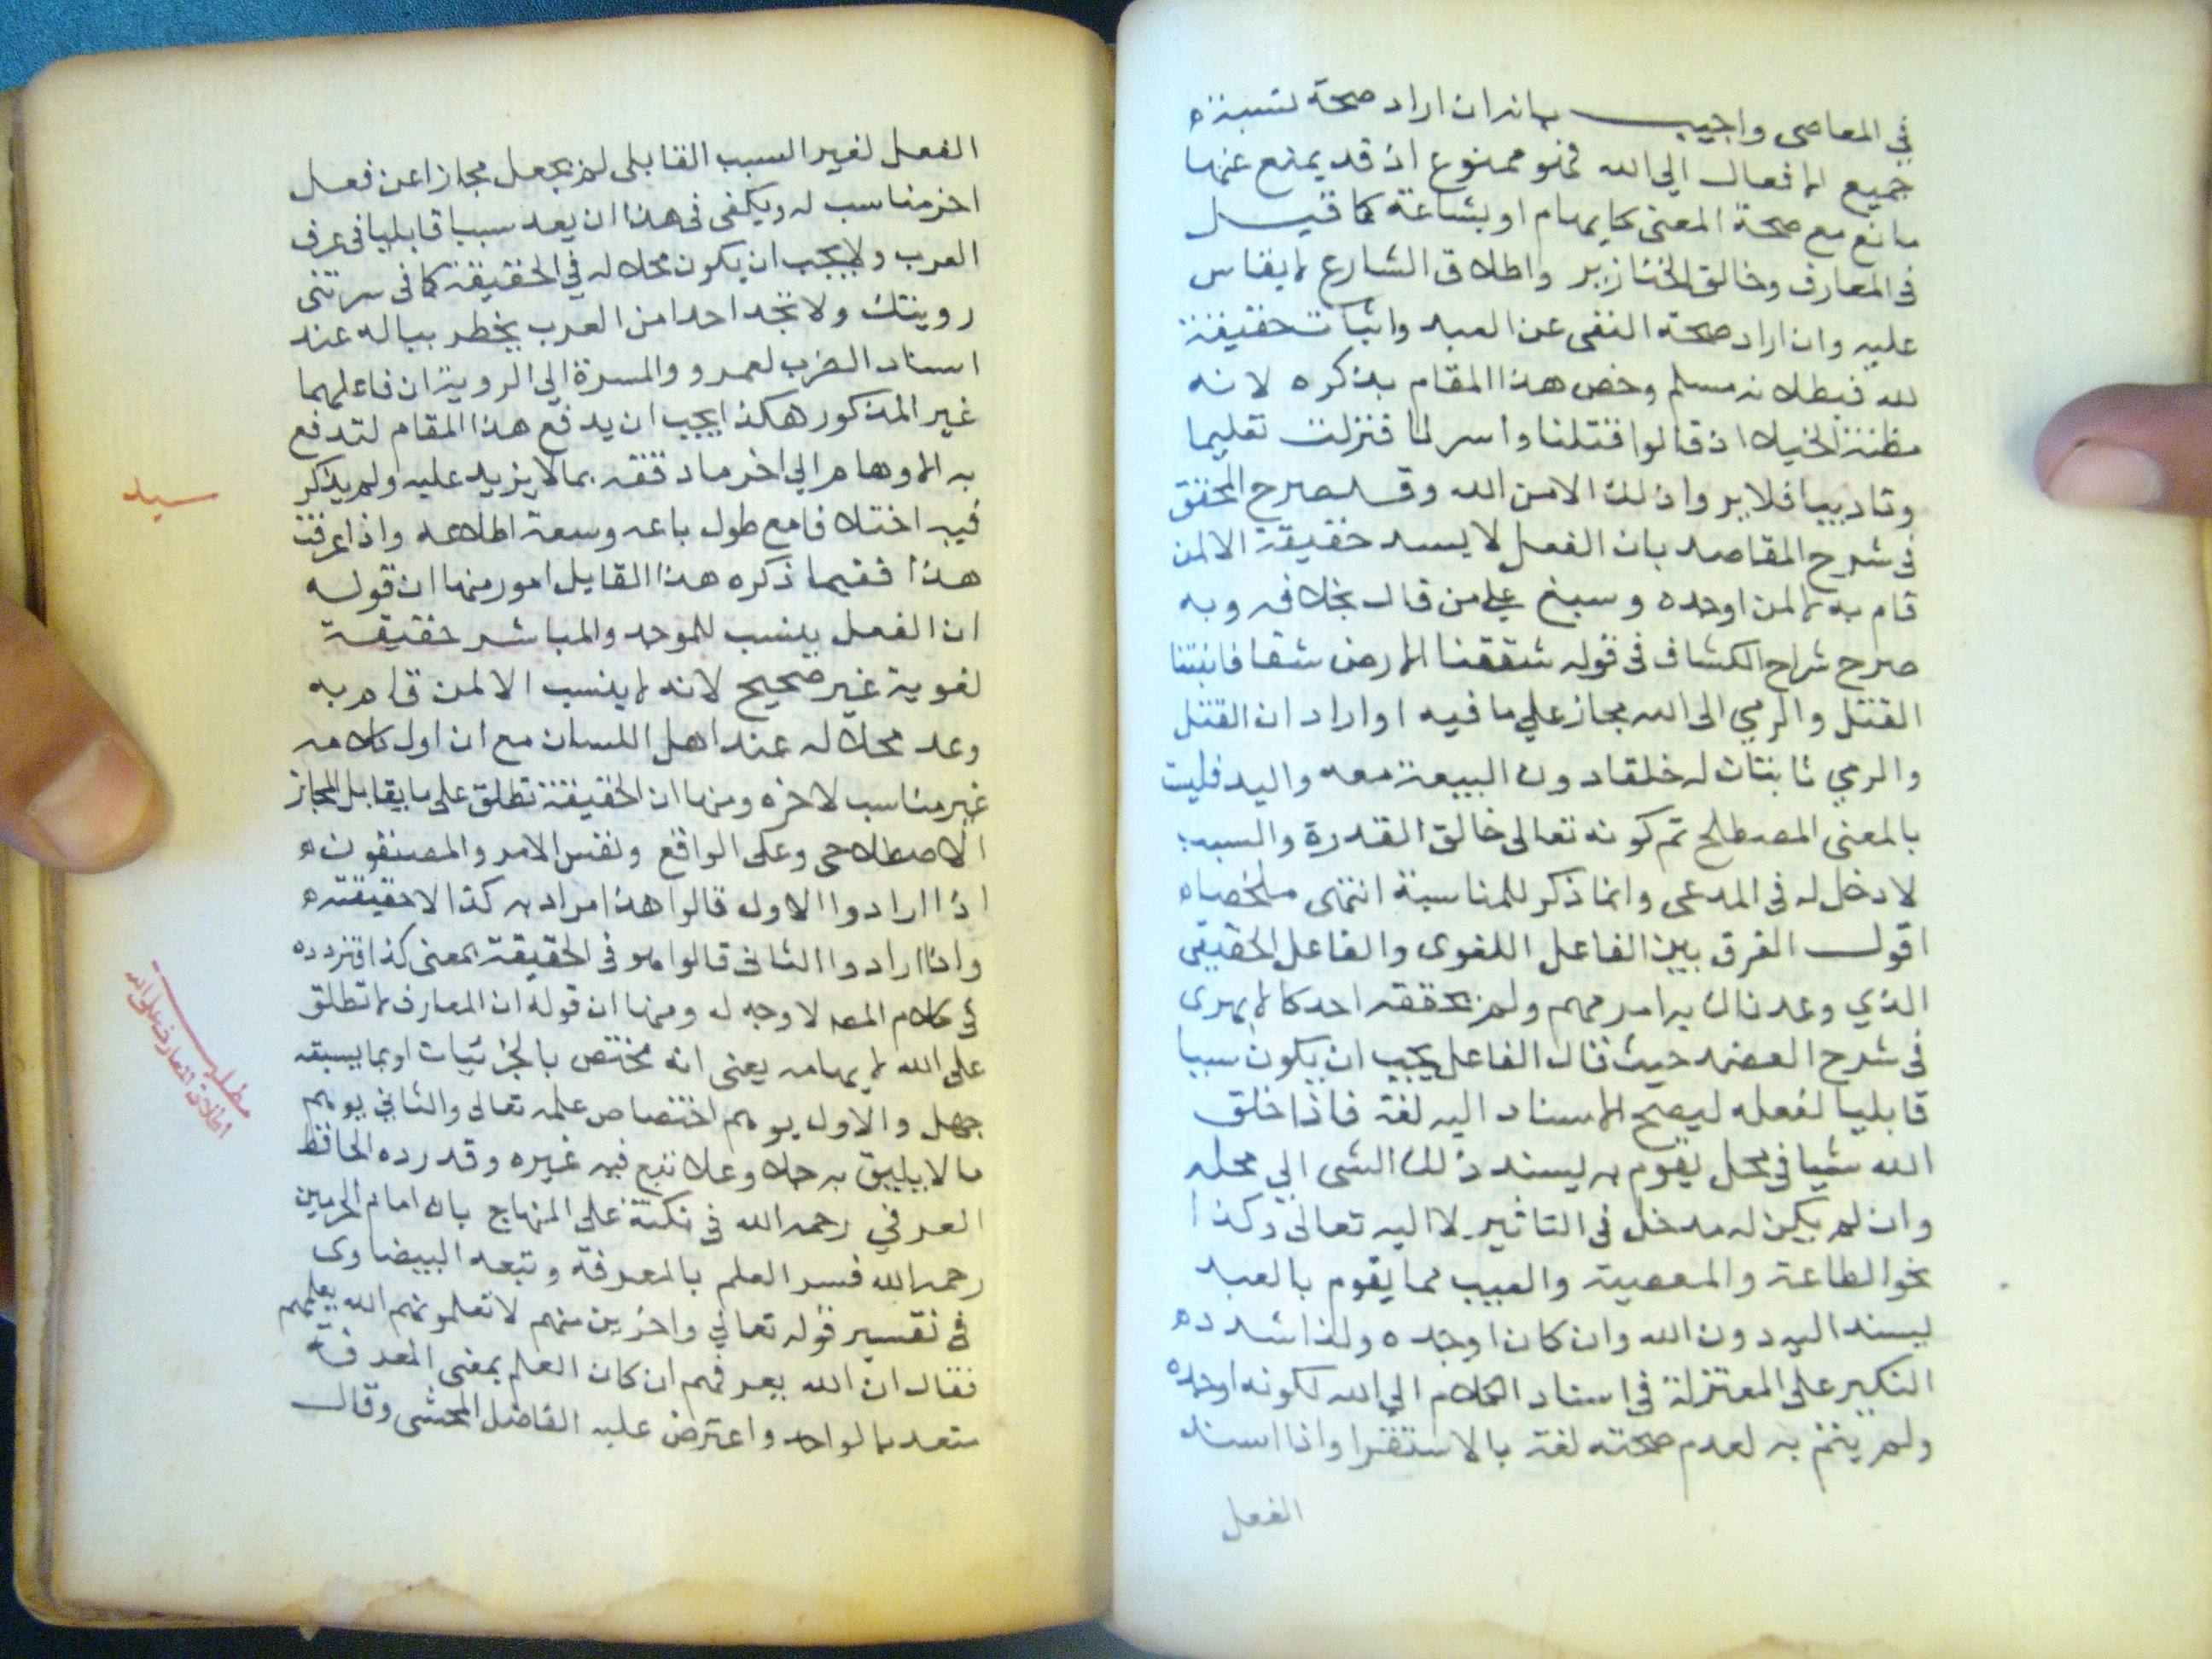 في المعاصى واجيب بانه ان اراد صحة نسبة
جميع الافعال الي الله فهو ممنوع اذ قد يمنع عنها
مانع مع صحة المعنى كايهام او بشاعة كما قيل
فى المعارف وخالق الخنازير واطلاق الشارع لا يقاس
عليه وان اراد صحة النفى عن العبد واثبات حقيقة
لله فبطلانه مسلم وخص هذا المقام بذكره لانه
مظنة الخيلا اذ قالوا قتلنا واسرنا فنزلت تعليما
وتاديبا فلا يروا ذلك الا من الله وقد صرح المحقق
فى شرح المقاصد بان الفعل لا يسند حقيقة الا لمن
قام به لا لمن اوجده وشنع علي من قال بخلافه وبه
صرح شراح الكشاف فى قوله شققنا الارض شقا فانبتنا
القتل والرمي الى الله مجاز علي ما فيه او اراد ان القتل
والرمي ثابتات له خلقا دون البيعة معه واليد فليت
بالمعنى المصطلح ثم كونه تعالى خالق القدرة والسبب
لا دخل له فى المدعى وانما ذكر للمناسبة انتهى ملخصا
اقول الفرق بين الفاعل اللغوى والفاعل الحقيقى
الذي وعدناك به امر مهم ولم يحققه احد كالابهرى
فى شرح العضد حيث قال الفاعل يجب ان يكون سببا
قابليا لفعله ليصح الاسناد اليه لغة فاذا خلق
الله شيا في محل يقوم به يسند ذلك الشى الي محله
وان لم يكن له مدخل فى التاثير لا اليه تعالى وكذا
نحو الطاعة والمعصية والعيب مما يقوم بالعبد
يسند اليه دون الله وان كان اوجده ولذا شدده
النكير على المعتزلة في اسناد الكلام الي الله لكونه اوجده
ولم يقم به لعدم صحته لغة بالاستقرا واذا اسند
الفعل
الفعل لغير السبب القابلى لم يجعل مجازا عن فعل
اخر مناسب له ويكفى فى هذا ان يعد سببا قابليا فى عرف
العرب ولا يجب ان يكون محلا له في الحقيقة كما فى سرتنى
رويتك ولا تجد احدا من العرب يخطر بباله عند
اسناد الضرب لعمرو والمسرة الي الروية ان فاعلهما
غير المذكور هكذا يجب ان يدفع هذا المقام لتدفع
به الاوهام الي اخر ما دققه بما لا يزيد عليه ولم يذكر
فيه اختلافا مع طول باعه وسعة اطلاعه واذا عرفت
سيد
هذا ففيما ذكره هذا القايل امور منها ان قوله
ان الفعل ينسب للموجد والمباشر حقيقة
لغوية غير صحيح لانه لا ينسب الا لمن قام به
وعد محلا له عند اهل اللسان مع ان اول كلامه
غير مناسب لاخره ومنها ان الحقيقة تطلق على ما يقابل المجاز
الاصطلاحى وعلى الواقع ونفس الامر والمصنفون
اذا ارادوا الاول قالوا هذا مراد به كذا لا حقيقته
واذا ارادوا الثانى قالوا هو فى الحقيقة بمعنى كذا فتردده
في كلام المص لا وجه له ومنها ان قوله ان المعارف لا تطلق
على الله لايهامه يعنى انه مختص بالجزئيات او بما يسبقه
مطلب
اطلاق المعارف على الله
جهل والاول يوهم اختصاص علمه تعالى والثاني يوهم
ما لا يليق به جل وعلا تبع فيه غيره وقد رده الحافظ
العرفي رحمه الله فى نكتة على المنهاج بان امام الحرمين
رحمه الله فسر العلم بالمعرفة وتبعه البيضاوى
فى تفسير قوله تعالي واخرين منهم لا تعلمونهم الله يعلمهم
فقال ان الله يعرفهم ان كان العلم بمعنى المعرفة
متعد بالواحد واعترض عليه الفاضل المحشى وقال